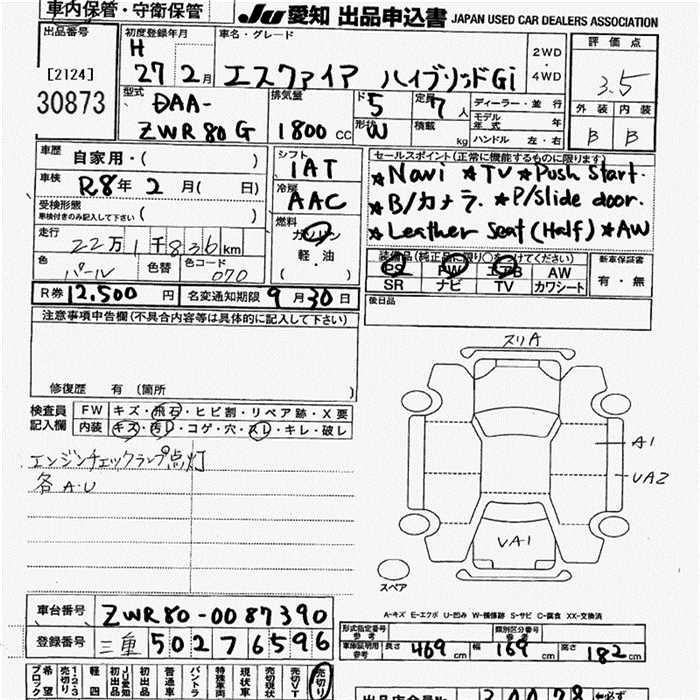 車内保管・守衛保管
JU 愛知 出品申込書 JAPAN USED CAR DEALERS ASSOCIATION
出品番号
[2124]
30873
初度登録年月
H
27 2月
車名・グレード
エスクァイア ハイブリッドGi
2WD
・
4WD
評価点
3.5
外装 内装
B B
型式
DAA-
ZWR80G
排気量
1800 CC
ド 5
形状 W
定員 7人
積載 kg
ディーラー・並行
モデル年式 年
ハンドル 左・右
車歴 自家用・( )
車検 R8年 2月( 日)
受検形態
車検付きのみ記入して下さい ( )
走行
22万1千836km
色 色替 色コード
パール 070
シフト
IAT
冷房
AAC
燃料
ガソリン
軽・油
( )
セールスポイント(正常に機能するものに限ります)
★Navi ★TV ★Push Start.
★B/カメラ. ★P/Slide door.
★Leather Seat(Half) ★AW
装備品(純正品に限り○をつけてください)
PS PW エアB AW
SR ナビ TV カワシート
新車保証書
有・無
R券 12,500円 名変通知期限 9月30日
後日品
注意事項申告欄(不具合内容等は具体的に記入して下さい)
修復歴 有 〔箇所 〕
検査員 FW キズ・飛石・ヒビ割・リペア跡・X要
記入欄 内装 キズ・汚レ・コゲ・穴・スレ・キレ・破レ
エンジンチェックランプ点灯
各A・U
スリA
A1
UA2
UA1
スペア
A-キズ E-エクボ U-凹み W-補修跡 S-サビ C-腐食 XX-交換済
車台番号 ZWR80-0087390
登録番号 三重 502 7 6596
形式指定番号
参考
類別区分番号
参考
車庫証明用
参考
長さ 469cm 幅 169cm 高さ 182cm
希望ブロック
1・2・3
売切り
軽四
JU愛知
初出品
初出品
普通車
バントラ
特殊車両
現状車
売切現状
売切りVT
売切り